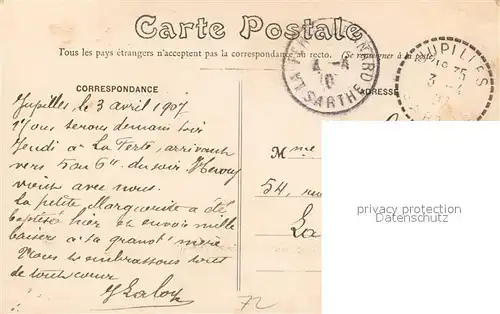 Carte Postale
Tous les pays étrangers n'acceptent pas la correspondance au recto. (Se renseigner à la poste)
LA FERTÉ
4 - 4
SARTHE
JUPILLES
3 - 4
CORRESPONDANCE
ADRESSE
Jupilles le 3 avril 1907
Nous serons demain soir
Jeudi à La Ferté, arrivant
vers 5 ou 6h du soir.
vient avec nous.
La petite Marguerite a été
baptisée hier et envoie mille
baisers à sa grand' mère
Nous vous embrassons tous
de tout coeur
Mme
54, rue
La
72
privacy protection
Datenschutz